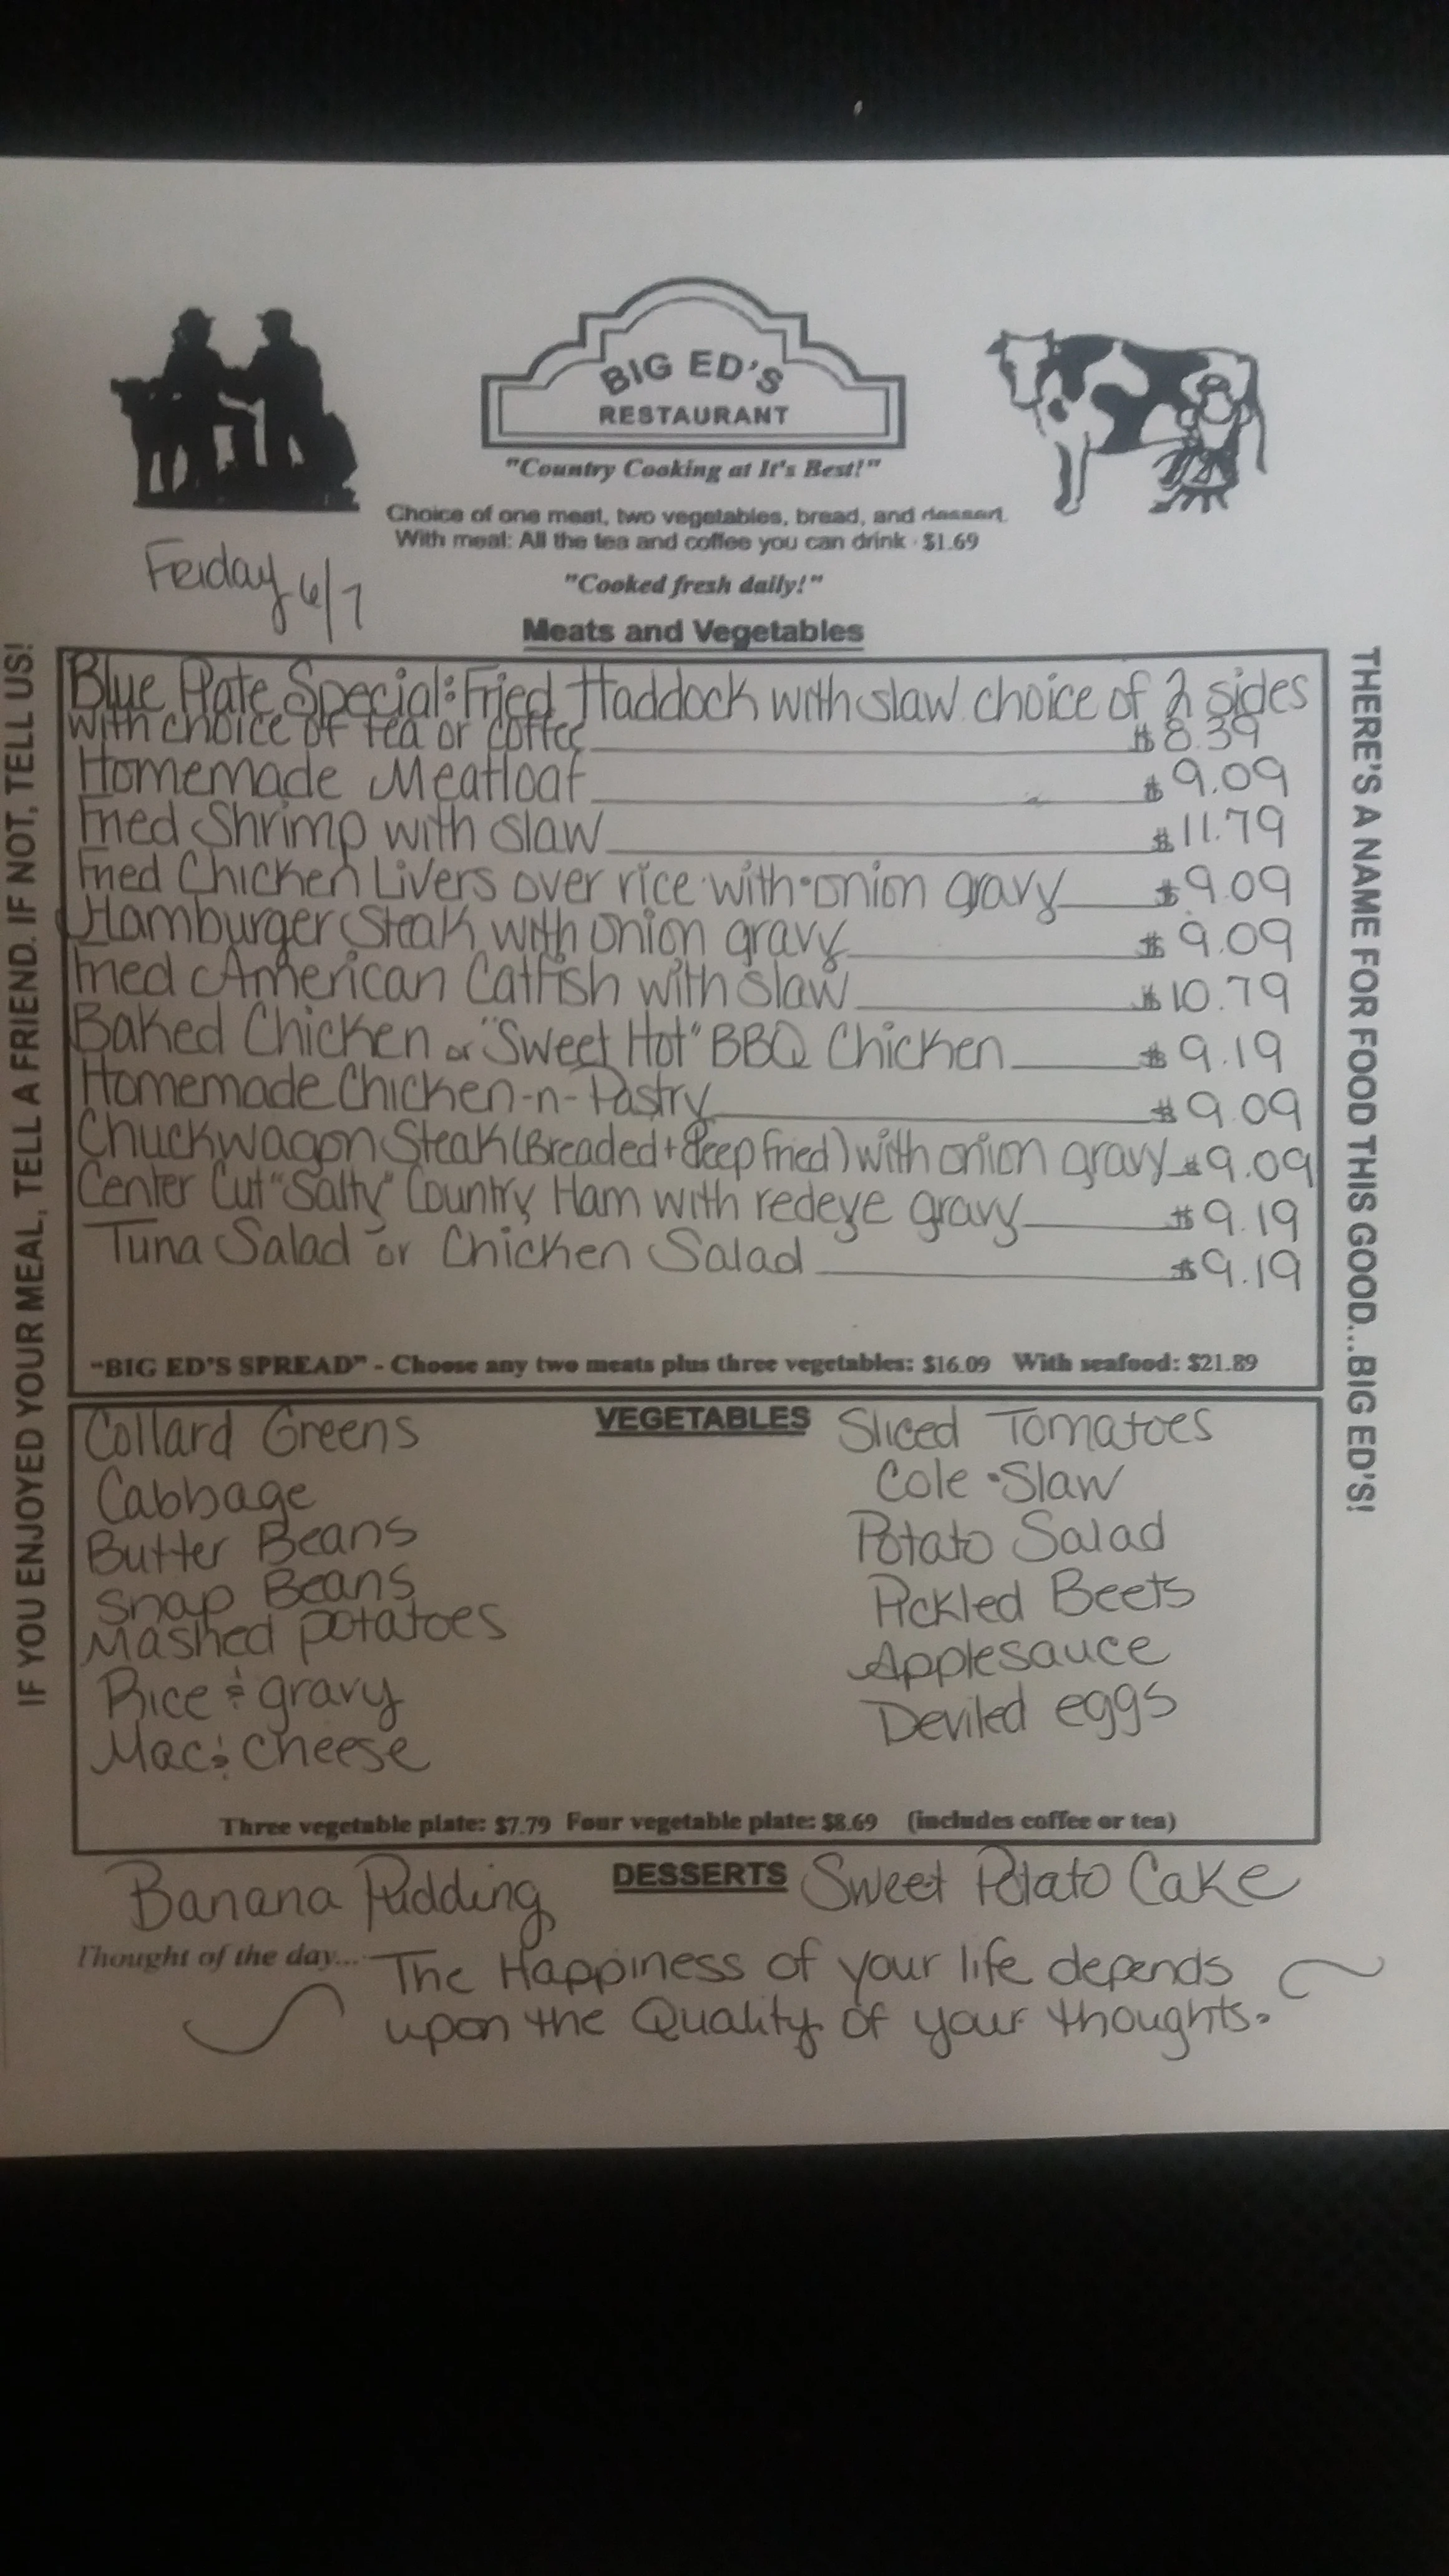 BIG ED'S
RESTAURANT
"Country Cooking at It's Best!"
Choice of one meat, two vegetables, bread, and dessert.
With meal: All the tea and coffee you can drink - $1.69
Friday 6/7
"Cooked fresh daily!"
Meats and Vegetables
Blue Plate Special: Fried Haddock with slaw choice of 2 sides
with choice of tea or coffee $8.39
Homemade Meatloaf $9.09
Fried Shrimp with slaw $11.79
Fried Chicken Livers over rice with onion gravy $9.09
Hamburger Steak with onion gravy $9.09
Fried American Catfish with slaw $10.79
Baked Chicken or "Sweet Hot" BBQ Chicken $9.19
Homemade Chicken-n-Pastry $9.09
Chuckwagon Steak (Breaded + Deep fried) with onion gravy $9.09
Center Cut "Salty" Country Ham with redeye gravy $9.19
Tuna Salad or Chicken Salad $9.19
"BIG ED'S SPREAD" - Choose any two meats plus three vegetables: $16.09 With seafood: $21.89
VEGETABLES
Collard Greens
Cabbage
Butter Beans
Snap Beans
Mashed potatoes
Rice & gravy
Mac & Cheese
Sliced Tomatoes
Cole Slaw
Potato Salad
Pickled Beets
Applesauce
Deviled eggs
Three vegetable plate: $7.79 Four vegetable plate: $8.69 (includes coffee or tea)
DESSERTS
Banana Pudding
Sweet Potato Cake
Thought of the day... The Happiness of your life depends
upon the Quality of your thoughts.
IF YOU ENJOYED YOUR MEAL, TELL A FRIEND. IF NOT, TELL US!
THERE'S A NAME FOR FOOD THIS GOOD...BIG ED'S!